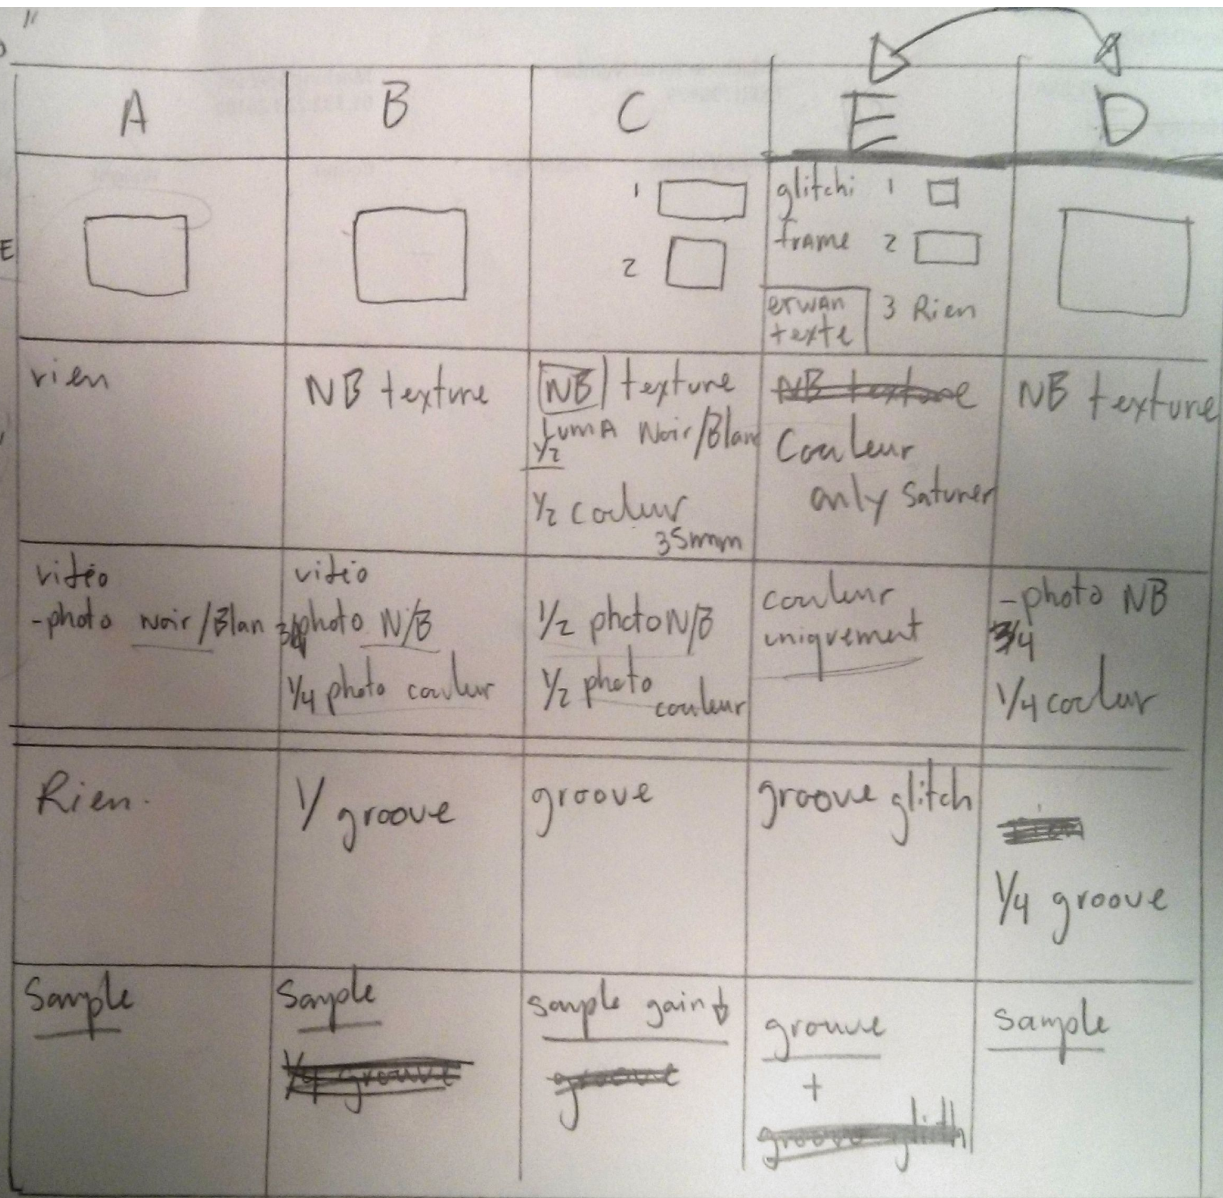 A B C E D
1
2
glitchi 1
frame 2
erwan 3 Rien
texte
rien
NB texture
NB texture
Luma Noir/Blan
1/2
1/2 couleur
35mm
NB texture
Couleur
only saturer
NB texture
vidéo
-photo Noir/Blan
vidéo
photo N/B
1/4 photo couleur
1/2 photo N/B
1/2 photo
couleur
couleur
uniquement
-photo NB
3/4
1/4 couleur
Rien.
1/ groove
groove
groove glitch
1/4 groove
Sample
Sample
1/4 groove
sample gain ↓
groove
groove
+
groove glith
sample